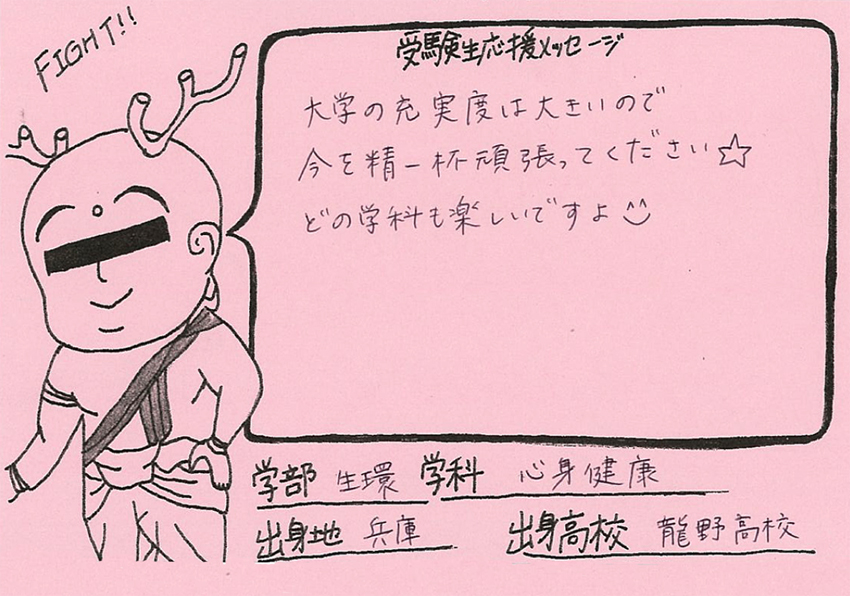 FIGHT!!
受験生応援メッセージ
大学の充実度は大きいので
今を精一杯頑張ってください☆
どの学科も楽しいですよ
学部 生環 学科 心身健康
出身地 兵庫 出身高校 龍野高校